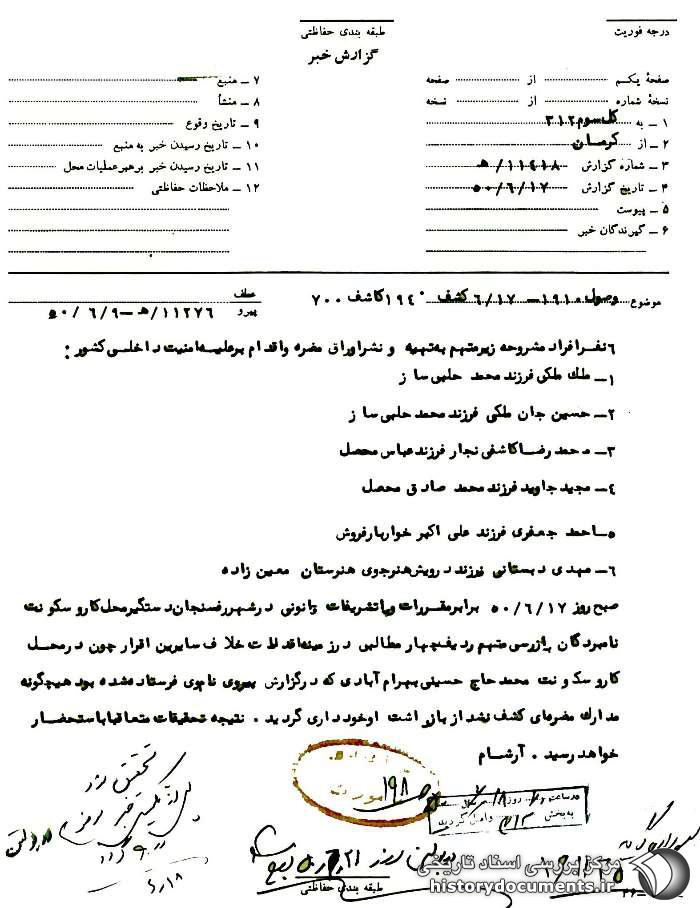 درجه فوریت
طبقه بندی حفاظتی
گزارش خبر
صفحهٔ یکم از صفحه
نسخهٔ شماره از نسخه
۱ ـ به کل سوم ۳۱۲
۲ ـ از کرمان
۳ ـ شماره گزارش ۱۱۴۱۸/ه
۴ ـ تاریخ گزارش ۵۰/۶/۱۷
۵ ـ پیوست
۶ ـ گیرندگان خبر
۷ ـ منبع
۸ ـ منشأ
۹ ـ تاریخ وقوع
۱۰ ـ تاریخ رسیدن خبر به منبع
۱۱ ـ تاریخ رسیدن خبر برهبر عملیات محل
۱۲ ـ ملاحظات حفاظتی
موضوع وصول ۱۹۱۰ - ۶/۱۷ کشف ۱۹۴۰ کاشف ۷۰۰
عطف
پیرو ۱۱۲۷۶/ه - ۵۰/۶/۹
۶ نفر افراد مشروحه زیر متهم به تهیه و نشر اوراق مضره و اقدام بر علیه امنیت داخلی کشور :
۱ـ ملک ملکی فرزند محمد حلبی ساز
۲ـ حسین جان ملکی فرزند محمد حلبی ساز
۳ـ محمد رضا کاشفی نجار فرزند عباس محصل
۴ـ مجید جاوید فرزند محمد صادق محصل
۵ـ احمد جعفری فرزند علی اکبر خواربار فروش
۶ـ مهدی دبستانی فرزند درویش هنرجوی هنرستان معین زاده
صبح روز ۵۰/۶/۱۷ برابر مقررات و با تشریفات قانونی در شهر رفسنجان دستگیر محل کار و سکونت
نامبردگان بازرسی متهم ردیف چهار مطالبی در زمینه اقدامات خلاف سایرین اقرار چون در محل
کار و سکونت محمد حاج حسینی بهرام آبادی که در گزارش پیروی نام وی فرستاده شده بود هیچگونه
مدارک مضره‌ای کشف نشد از بازداشت او خودداری گردید . نتیجه تحقیقات متعاقبا باستحضار
خواهد رسید . آرشام
۱۹۸
در ساعت روز
به بخش ۳۱۲ واصل گردید
طبقه بندی حفاظتی
مرکز بررسی اسناد تاریخی
historydocuments.ir